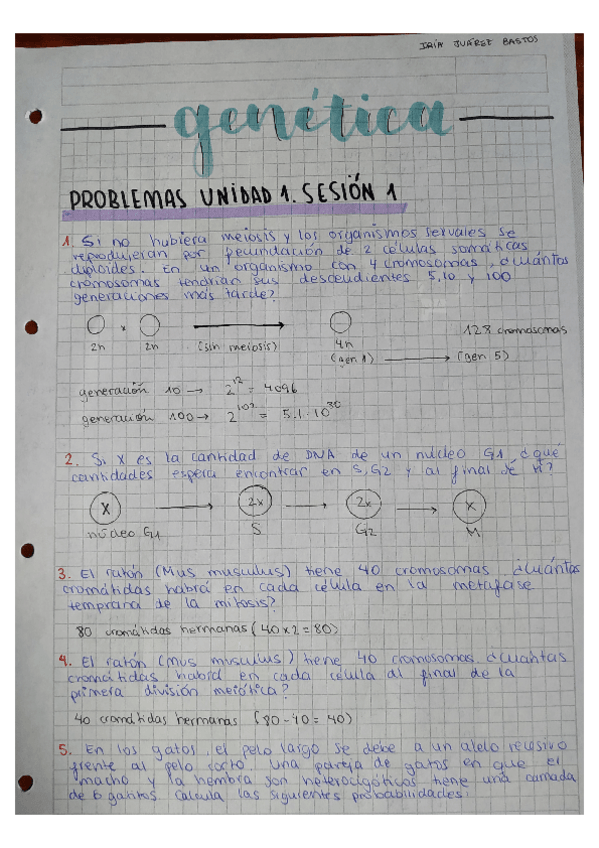 IRIA JUÁREZ BASTOS
genética
PROBLEMAS UNIDAD 1. SESIÓN 1
1. Si no hubiera meiosis y los organismos sexuales se
reprodujeran por fecundación de 2 células somáticas
diploides. En un organismo con 4 cromosomas, ¿cuántos
cromosomas tendrían sus descendientes 5, 10 y 100
generaciones más tarde?
x
128 cromosomas
2n 2n (sin meiosis) 4n
(gen 1) (gen 5)
generación 10 → 2^12 = 4096
generación 100 → 2^102 = 5.1·10^30
2. Si x es la cantidad de DNA de un núcleo G1 ¿qué
cantidades espera encontrar en S, G2 y al final de M?
X 2x 2x x
núcleo G1 S G2 M
3. El ratón (Mus musculus) tiene 40 cromosomas. ¿Cuántas
cromátidas habrá en cada célula en la metafase
temprana de la mitosis?
80 cromátidas hermanas (40x2=80)
4. El ratón (mus musculus) tiene 40 cromosomas. ¿Cuántas
cromátidas habrá en cada célula al final de la
primera división meiótica?
40 cromátidas hermanas (80-40=40)
5. En los gatos, el pelo largo se debe a un alelo recesivo
frente al pelo corto. Una pareja de gatos en que el
macho y la hembra son heterocigóticos tiene una camada
de 6 gatitos. Calcula las siguientes probabilidades: